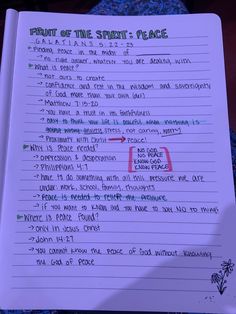 FRUIT OF THE SPIRIT: PEACE
GALATIANS 5:22-23
Finding peace in the midst of
→ no right answer, whatever you are dealing with
What is peace?
→ not ours to create
→ confidence and rest in the wisdom and sovereignty
of God more than your own (ours)
→ Matthew 7:15-20
→ You have a trust in his faithfulness
→ easy to think your life is peaceful when nothing is
going wrong unless stress, not caring, worry
→ Proximity with Christ → peace!
Why is Peace needed?
→ oppression & desperation
→ Philippians 4:7
NO GOD
NO PEACE
KNOW GOD
KNOW PEACE
→ have to do something with all this pressure we are
under: work, school, family, thoughts
→ Peace is needed to relieve the pressure
→ if you want to know God you have to say NO to things
Where is peace found?
→ only in Jesus Christ
→ John 14:27
→ You cannot know the peace of God without knowing
the God of peace